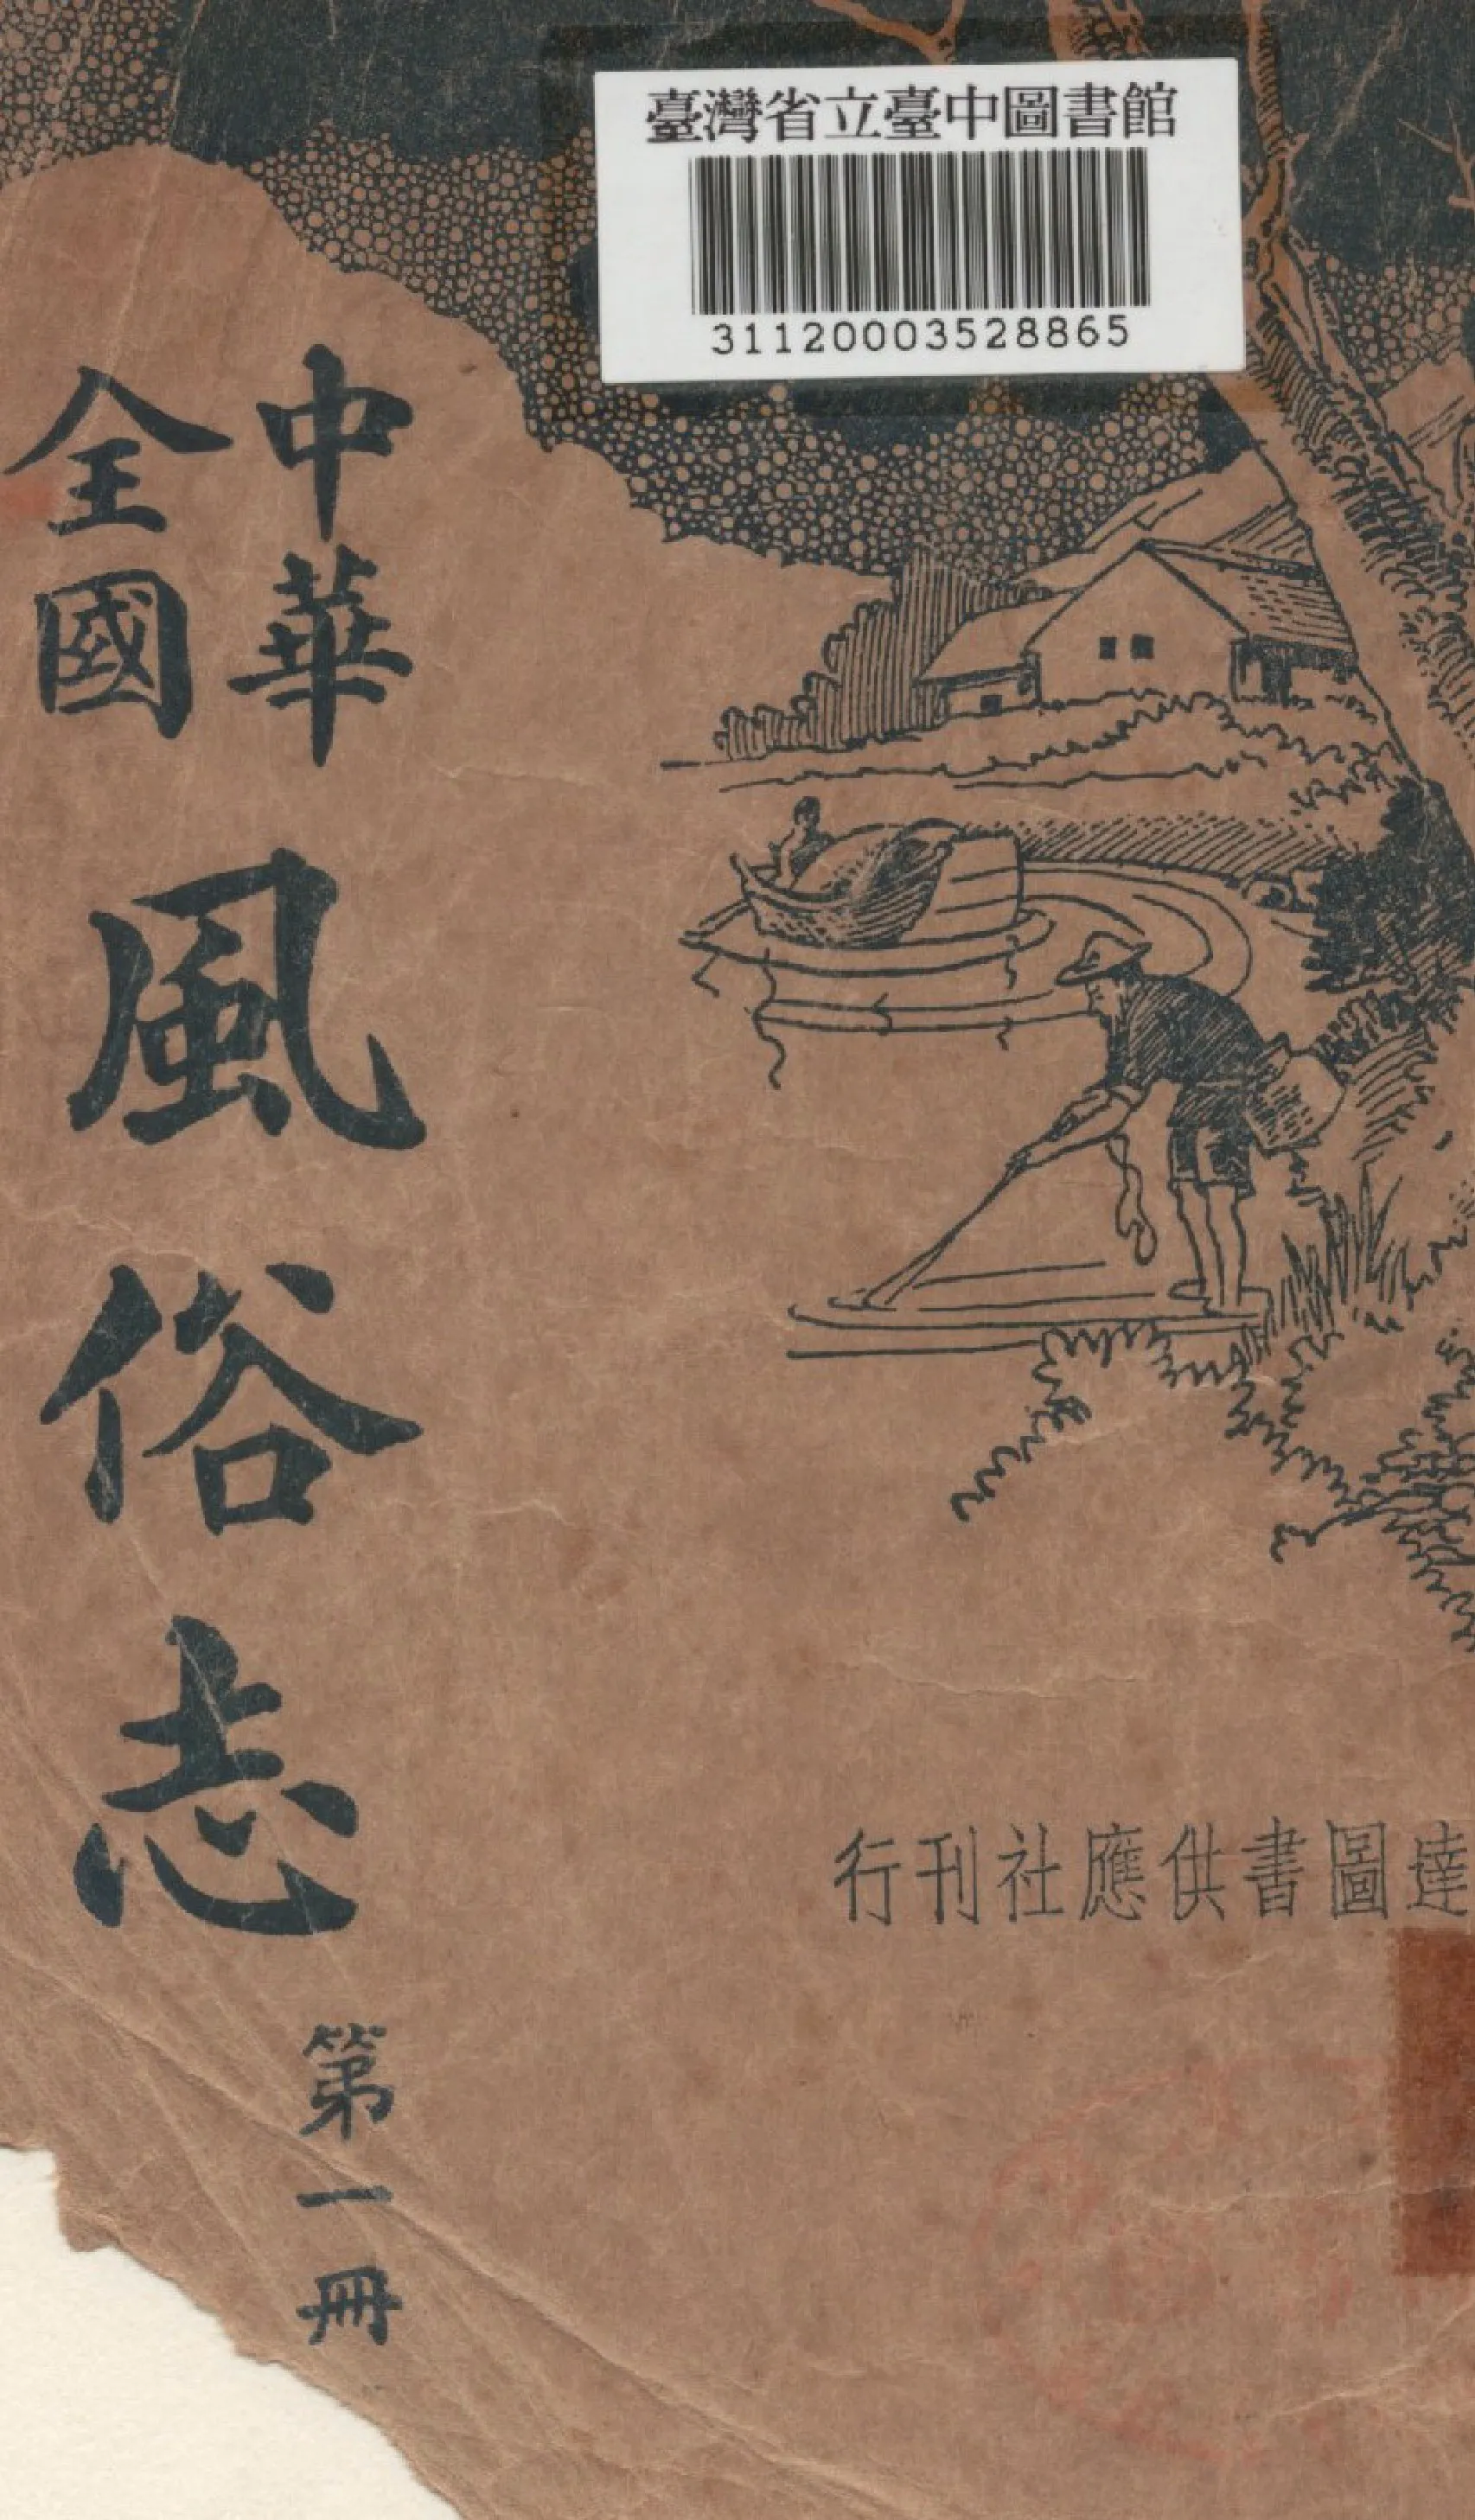 臺灣省立臺中圖書館
31120003528865
中華
全國
風俗志
第一冊
行刊社應供書圖達